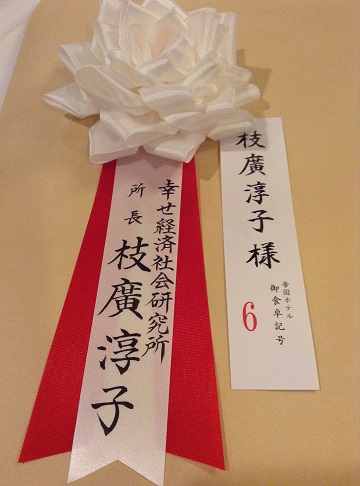 幸せ経済社会研究所
所長
枝廣淳子
枝廣淳子様
帝国ホテル
御食卓記号
6